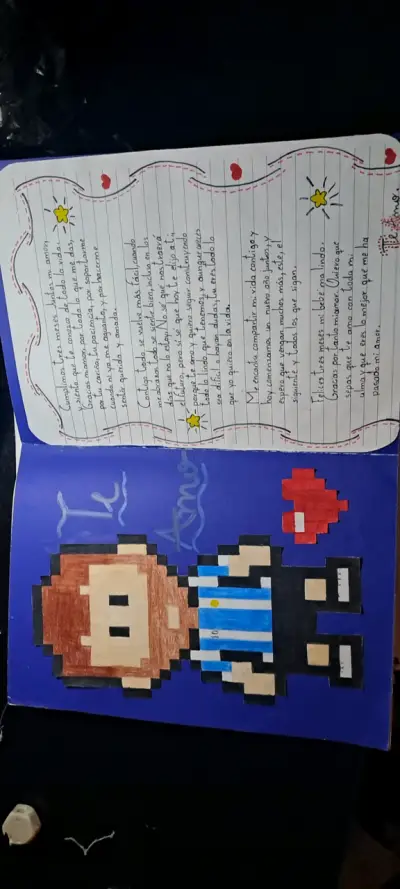 Cumplimos tres meses juntos mi amor,
y siento que te conozco de toda la vida.
Gracias mi amor por todo lo que me das,
por confiar, la paciencia, por soportarme
cuando ni yo me aguanto, y por hacerme
sentir querida y amada.
Contigo todo se vuelve más fácil, cuando
me abrazas y me se siente bien, incluso en los
días que no lo estoy. No se que nos traerá
el futuro, pero sí se que hoy te elijo a ti,
porque te amo y quiero seguir construyendo
todo lo lindo que tenemos, y aunque aveces
sea difícil o hayan dudas, tu eres todo lo
que yo quiero en la vida.
Me encanta compartir mi vida contigo, y
hoy comenzamos un nuevo año juntos, y
espero que vengan muchos más, este, el
siguiente y todos los que sigan.
Felices tres meses mi bebe mas lindo.
Gracias por tanto miamor. Quiero que
sepas que te amo con toda mi
alma, y que eres lo mejor que me ha
pasado mi amor.
Te Amo.
Te
Amo
10